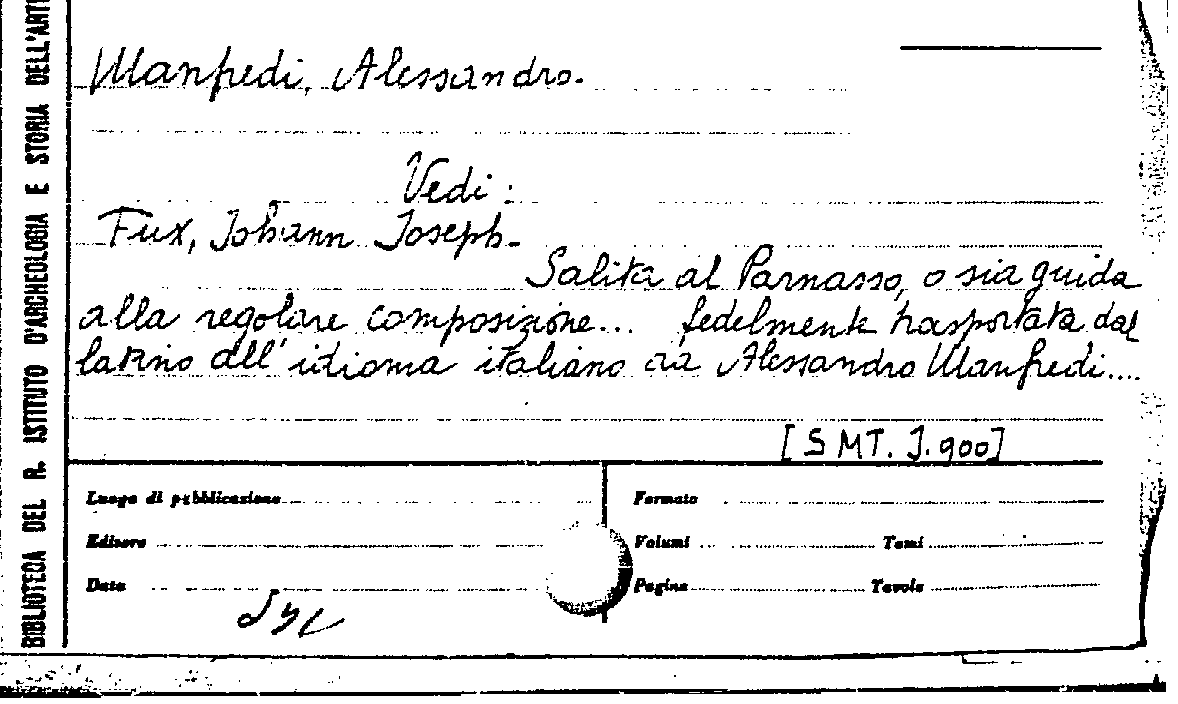 BIBLIOTECA DEL R. ISTITUTO D'ARCHEOLOGIA E STORIA DELL'ART
Manfredi, Alessandro.
Vedi:
Fux, Johann Joseph.
Salita al Parnasso, o sia guida
alla regolare composizione... fedelmente trasportata dal
latino all'idioma italiano da Alessandro Manfredi....
[SMT. J. 900]
Luogo di pubblicazione
Editore
Data
Formato
Volumi Tomi
Pagine Tavole